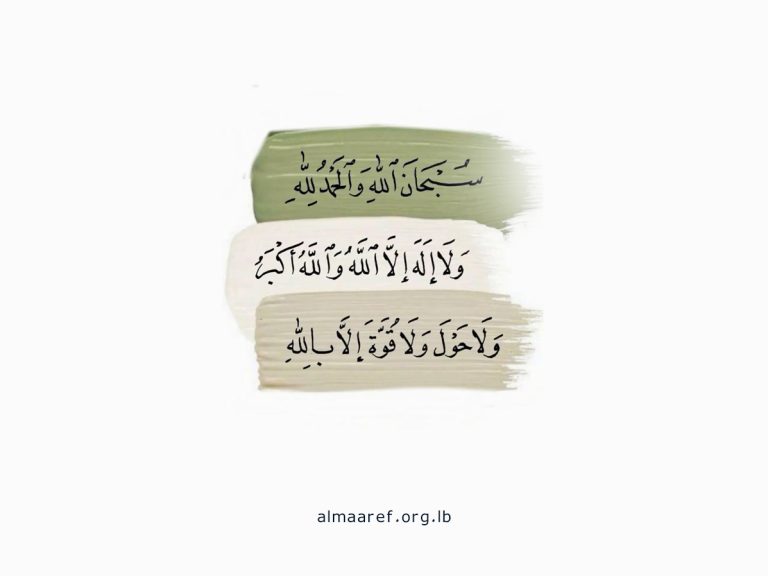 سُبْحَانَ ٱللَّٰهِ وَٱلْحَمْدُ لِلَّٰهِ
وَلَا إِلَٰهَ إِلَّا ٱللَّٰهُ وَٱللَّٰهُ أَكْبَرُ
وَلَا حَوْلَ وَلَا قُوَّةَ إِلَّا بِاللَّٰهِ
almaaref.org.lb